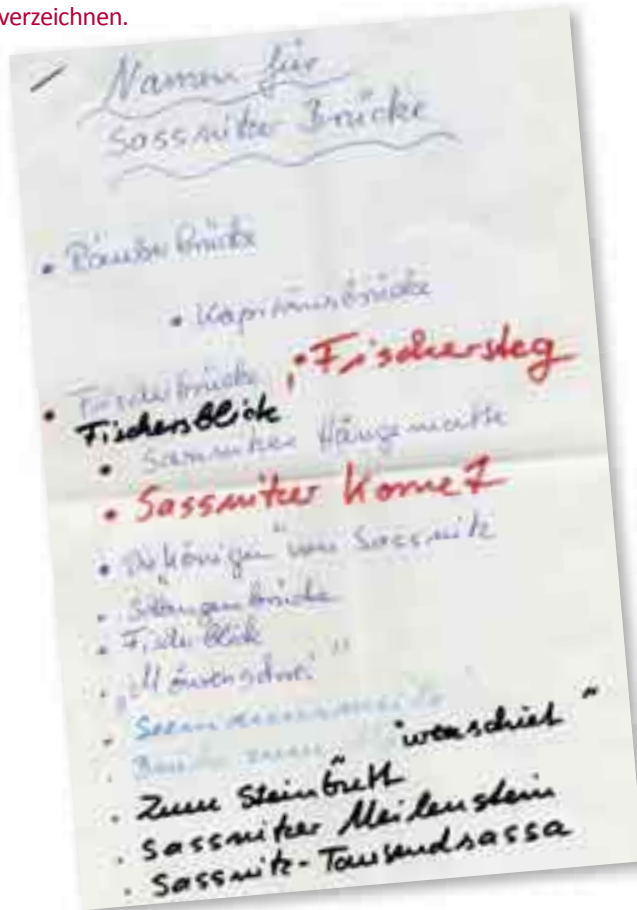 verzeichnen.
Namen für
Sassnitzer Brücke
• Räuberbrücke
• Kapitänsbrücke
• Fischerbrücke, • Fischersteg
Fischersblick
• Sassnitzer Hängematte
• Sassnitzer Komet
• "Königin" von Sassnitz
• Schlangenbrücke
• Fischerblick
• „Möwenschrei"
• Zum Steinbrett
• Sassnitzer Meilenstein
• Sassnitz-Tausendsassa